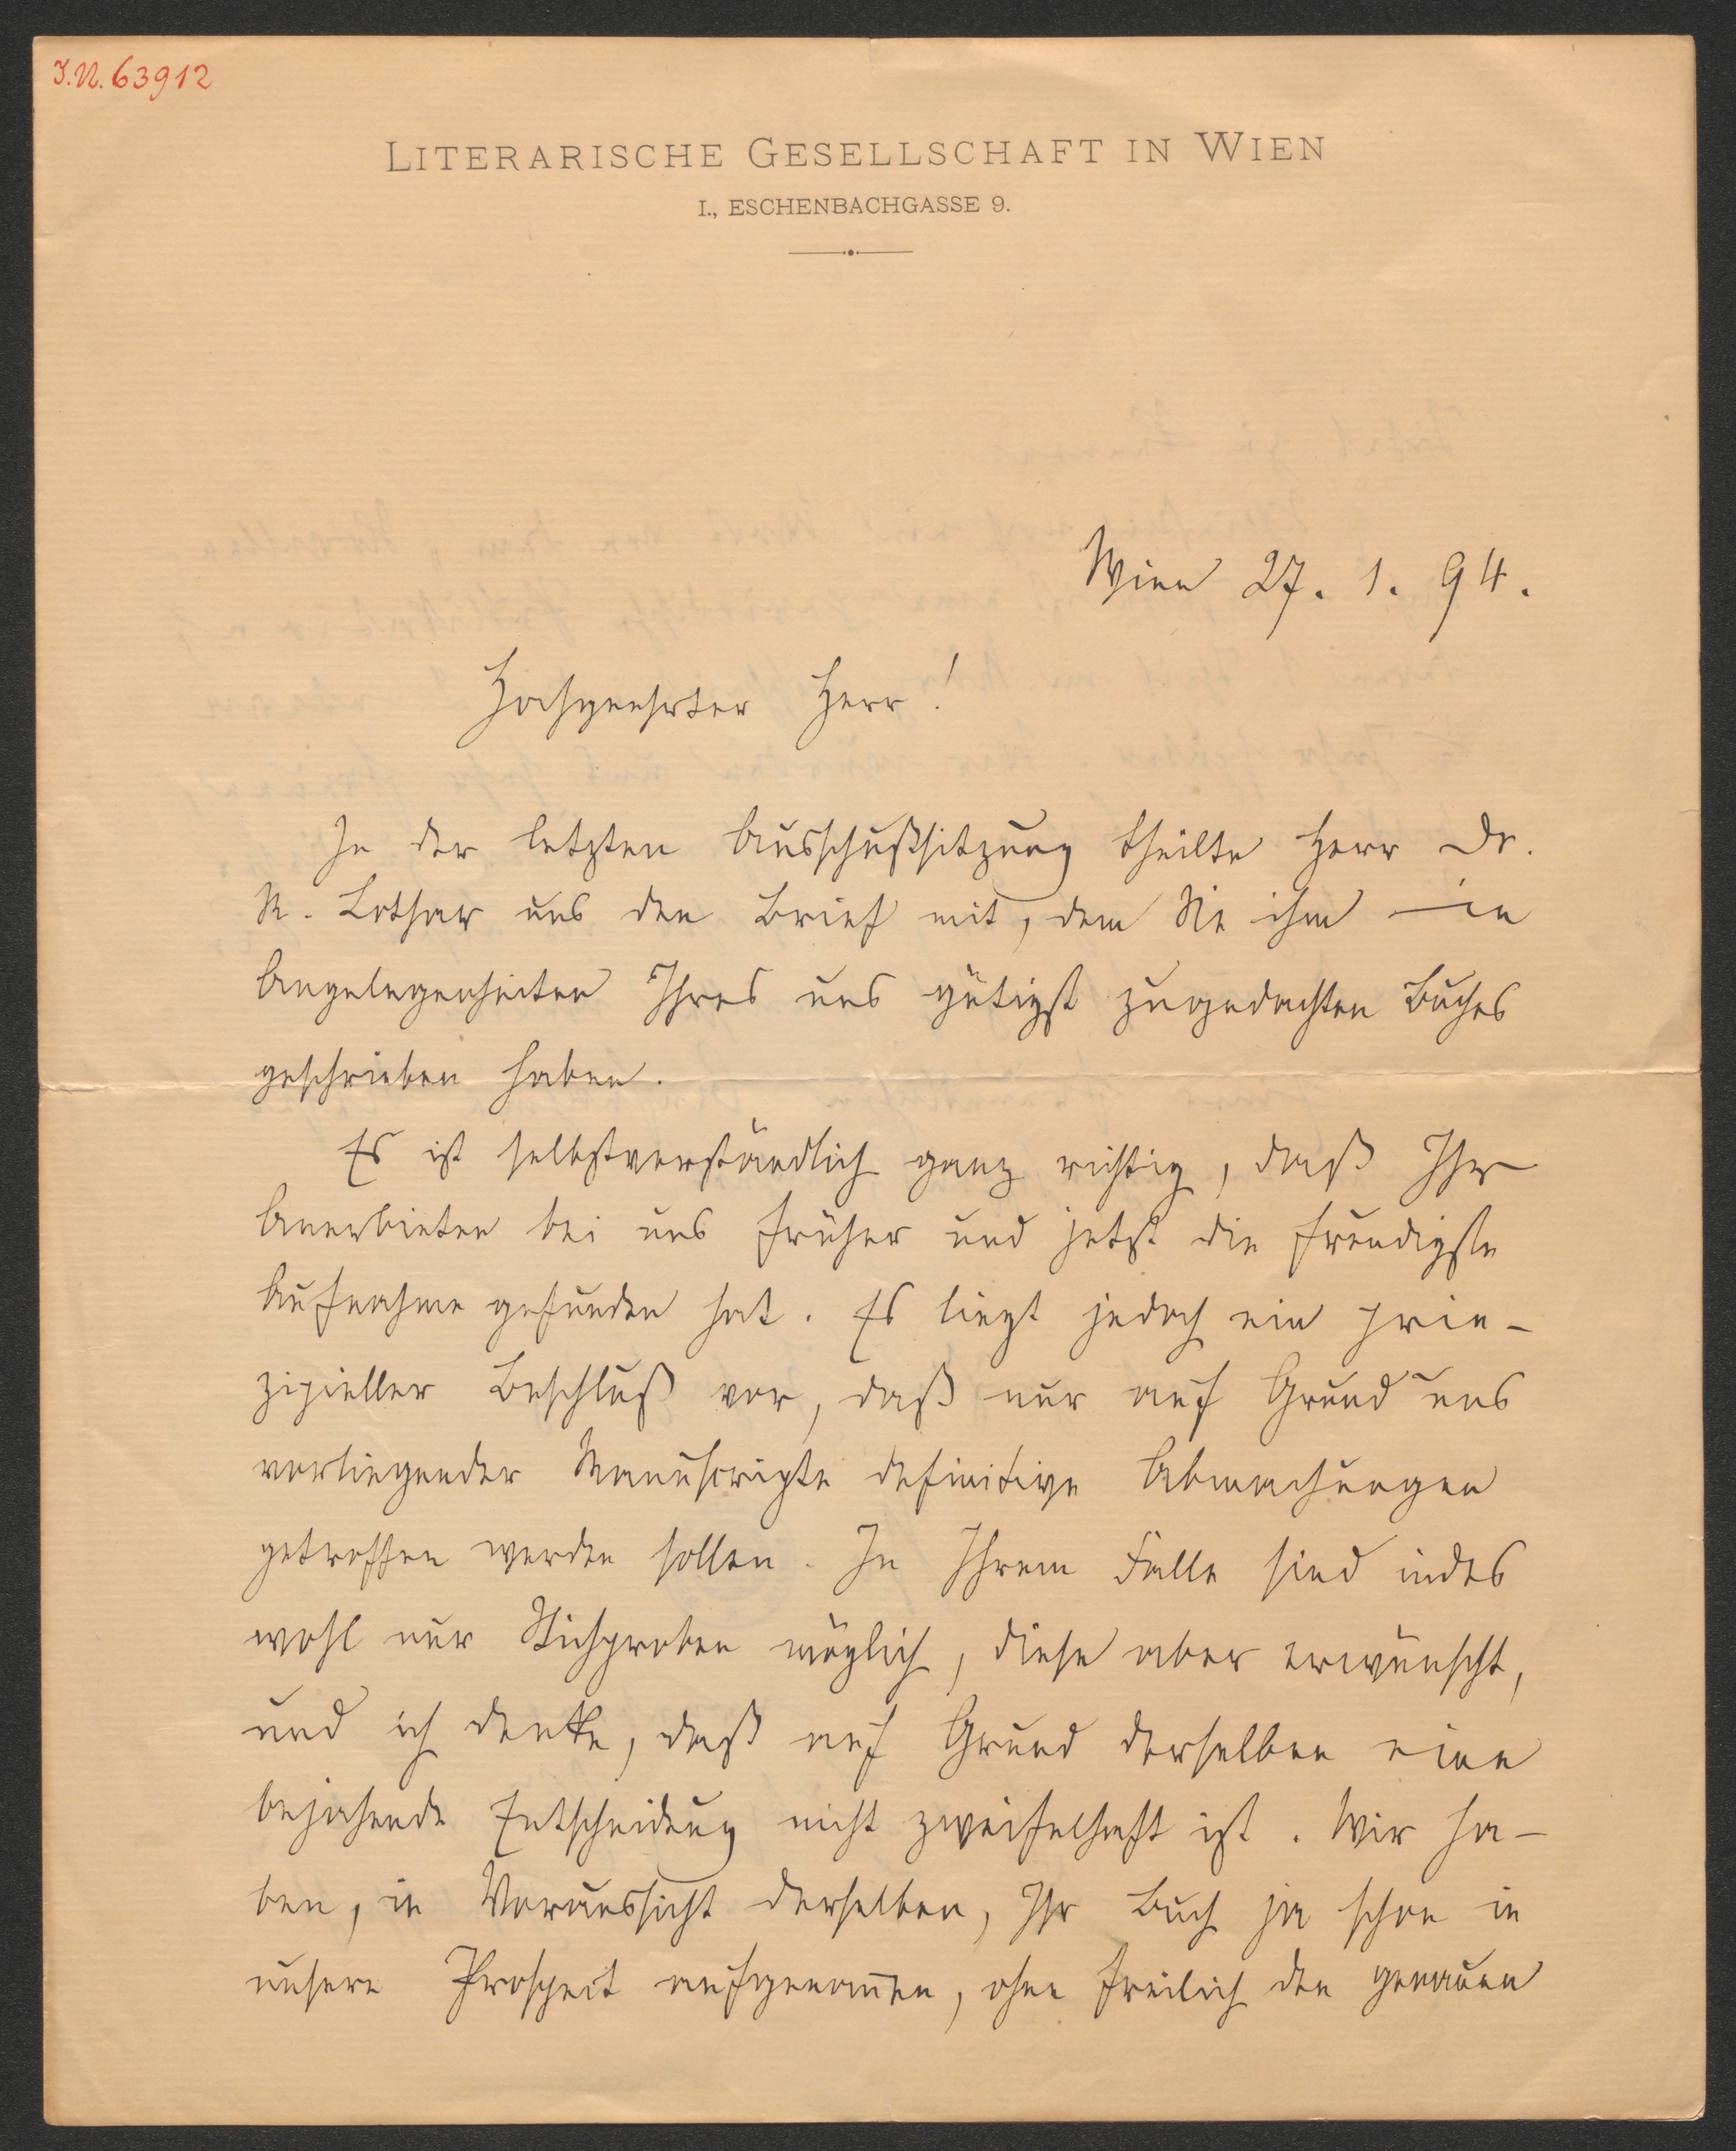 I.N. 63912
LITERARISCHE GESELLSCHAFT IN WIEN
I., ESCHENBACHGASSE 9.
Wien 27. 1. 94.
Hochgeehrter Herr!
In der letzten Ausschußsitzung theilte Herr Dr.
R. Lothar uns den Brief mit, dem Sie ihm in
Angelegenheiten Ihres uns gütigst zugedachten Buches
geschrieben haben.
Es ist selbstverständlich ganz richtig, daß Ihr
Anerbieten bei uns früher und jetzt die freudigste
Aufnahme gefunden hat. Es liegt jedoch ein prin-
zipieller Beschluß vor, daß nur auf Grund uns
vorliegender Manuscripte definitive Abmachungen
getroffen werden sollen. In Ihrem Falle sind indes
wohl nur Stichproben möglich, diese aber erwünscht,
und ich denke, daß auf Grund derselben eine
bejahende Entscheidung nicht zweifelhaft ist. Wir ha-
ben, in Voraussicht derselben, Ihr Buch ja schon in
unsere Prospect aufgenom̄en, ohne freilich den genauen